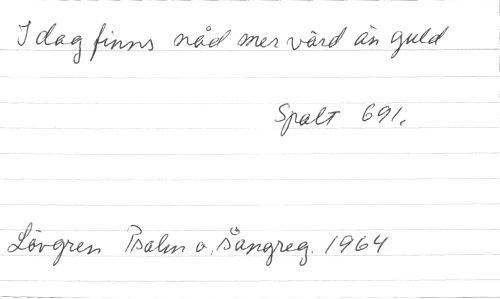 I dag finns nåd mer värd än guld
Spalt 691.
Lövgren Psalm o. sångreg. 1964